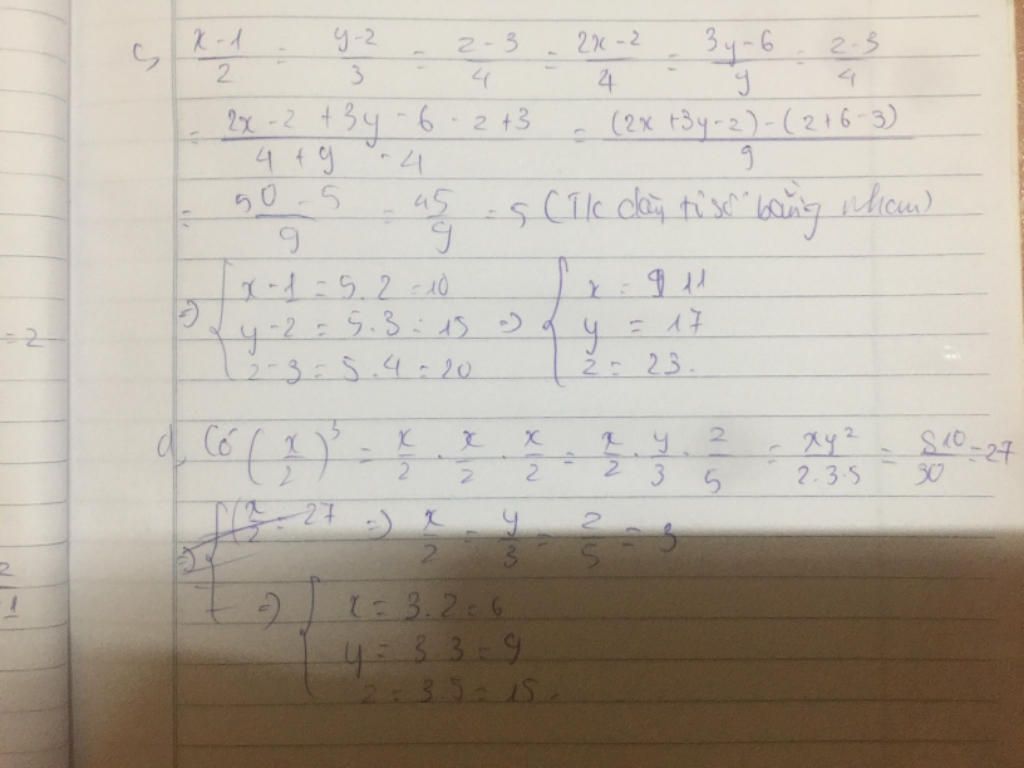 c, (x-1)/2 = (y-2)/3 = (z-3)/4 = (2x-2)/4 = (3y-6)/9 = (z-3)/4
= (2x-2+3y-6-z+3)/(4+9-4) = ((2x+3y-z)-(2+6-3))/9
= (50-5)/9 = 45/9 = 5 (T/c dãy tỉ số bằng nhau)
=> { x-1 = 5.2 = 10 { x = 11
y-2 = 5.3 = 15 => y = 17
z-3 = 5.4 = 20 z = 23.
d, Có (x/2)^3 = x/2 . x/2 . x/2 = x/2 . y/3 . z/5 = xyz/(2.3.5) = 810/30 = 27
=> { (x/2 = 27 => x/2 = y/3 = z/5 = 3
=> { x = 3.2 = 6
y = 3 3 = 9
z = 3 5 = 15.
= 2
2
1